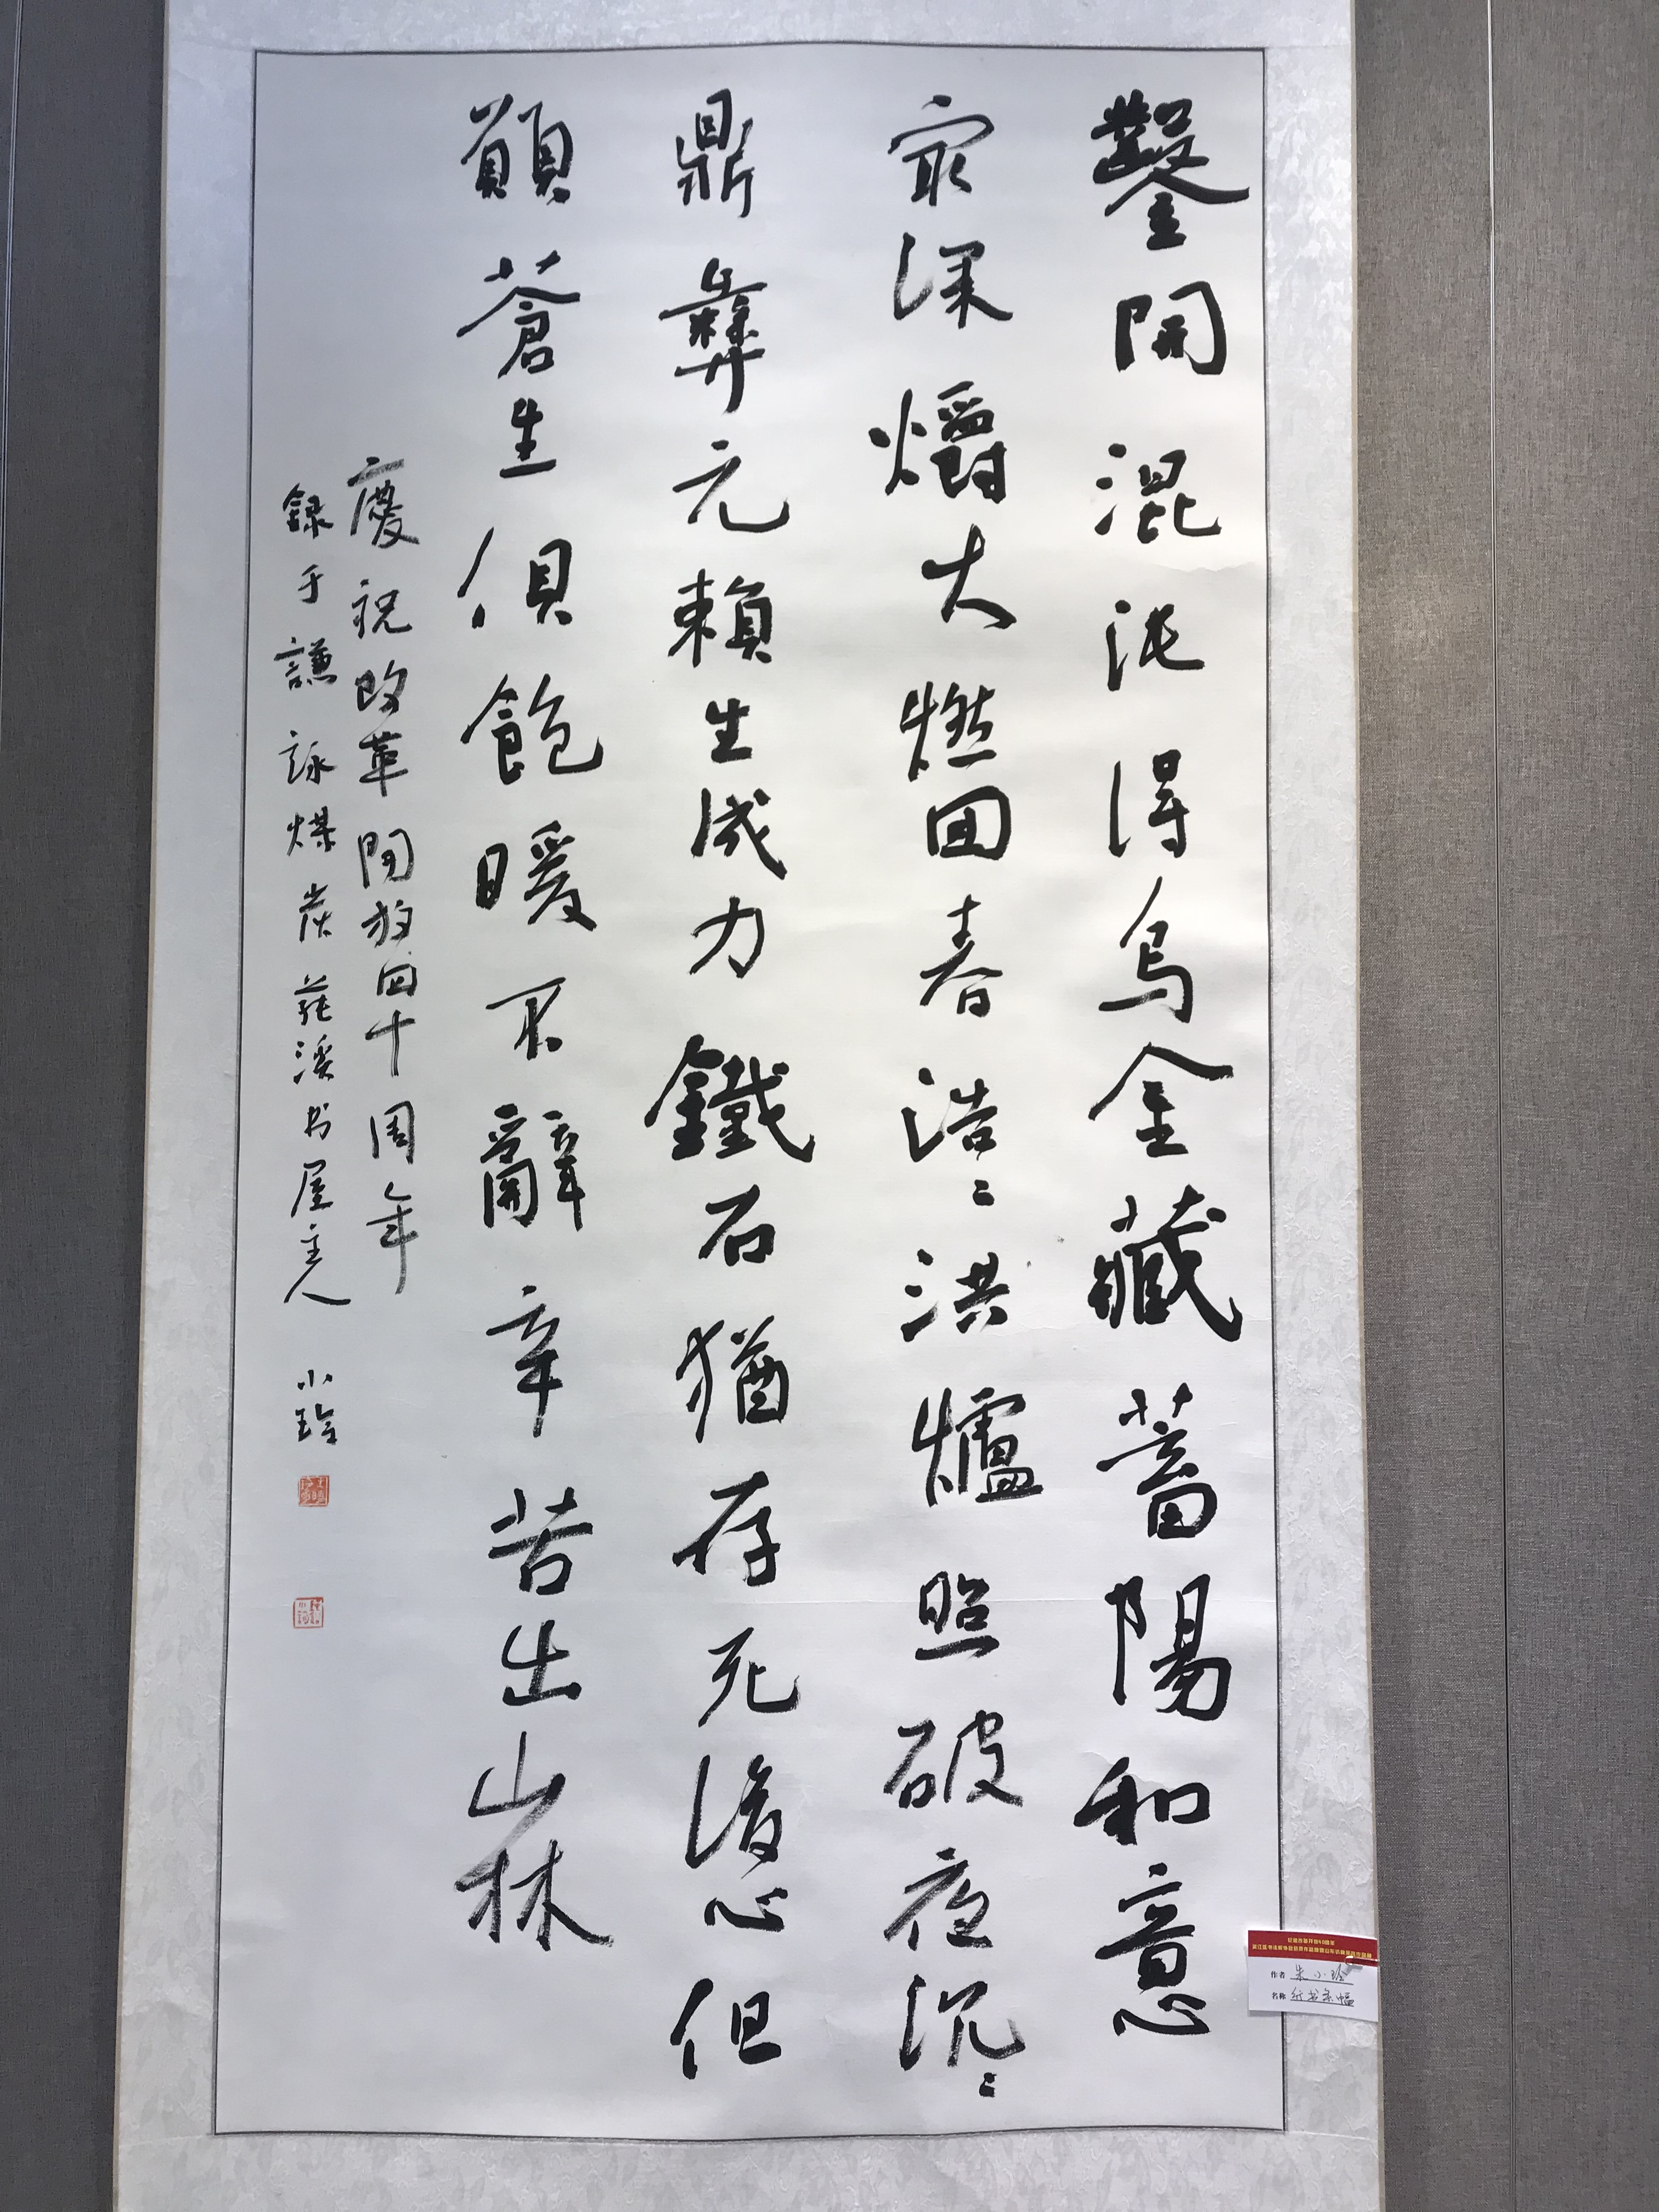 鑿開混沌得烏金藏蓄陽和意
㝡深爝火燃回春浩〻洪爐照破夜沉〻
鼎彝元賴生成力鐵石猶存死後心但
願蒼生俱飽暖不辭辛苦出山林
慶祝改革開放四十周年
錄于謙詠煤炭溪书屋主人 小玲
纪念改革开放40周年
作者 朱小玲
名称 行书条幅